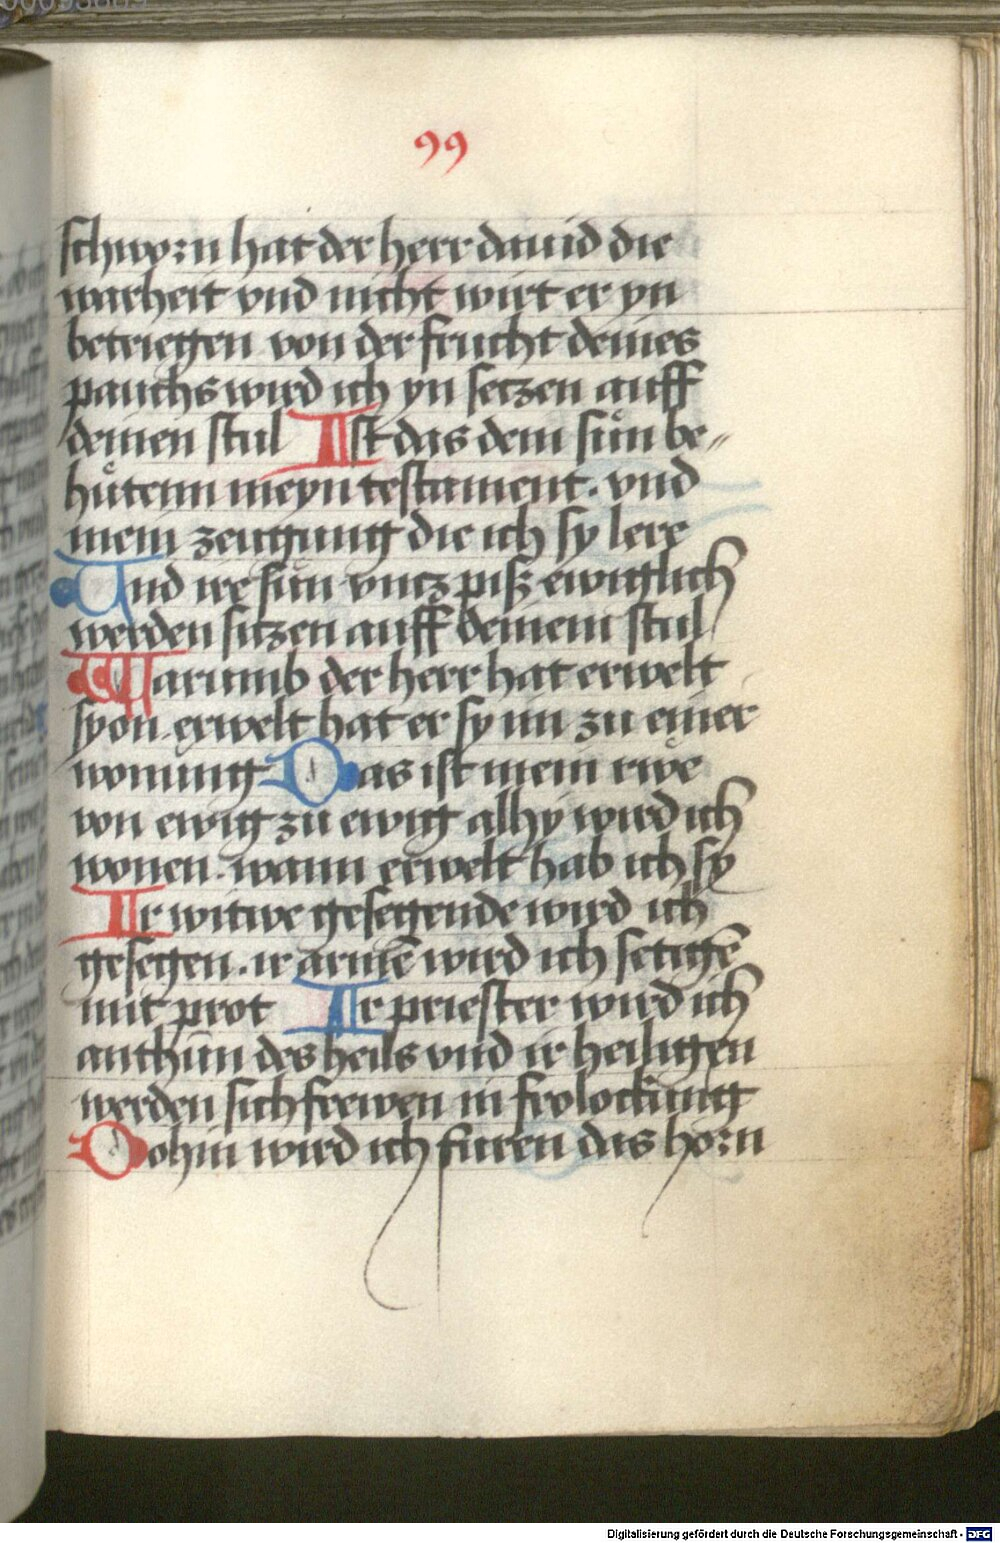 99
schworn hat der herr dauid die
warheit vnd nicht wirt er yn
betriegen von der frucht deines
pauchs wird ich yn setzen auff
deinen stul Ist das dein sün be„
hůtenn meyn testament. vnd
mein zeugung die ich sy lere
Vnd ire sün vncz piß ewigklich
werden sitzen auff deinem stul
Warumb der herr hat erwelt
syon. erwelt hat er sy im zu einer
wonung Das ist mein rwe
von ewig zu ewig alhy wird ich
wonen. wann erwelt hab ich sy
Ir witwe gesegende wird ich
gesegen. ir armē wird ich setigē
mit prot Ir priester wird ich
anthün des heils vnd ir heiligen
werden sich frewen in frolockung
Dohin wird ich füren das horn
Digitalisierung gefördert durch die Deutsche Forschungsgemeinschaft - DFG